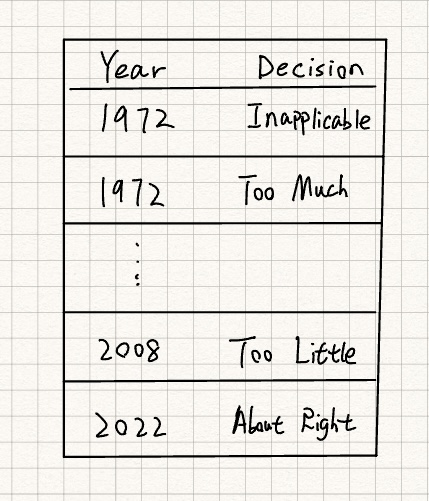 Year Decision
1972 Inapplicable
1972 Too Much
⋮
2008 Too Little
2022 About Right